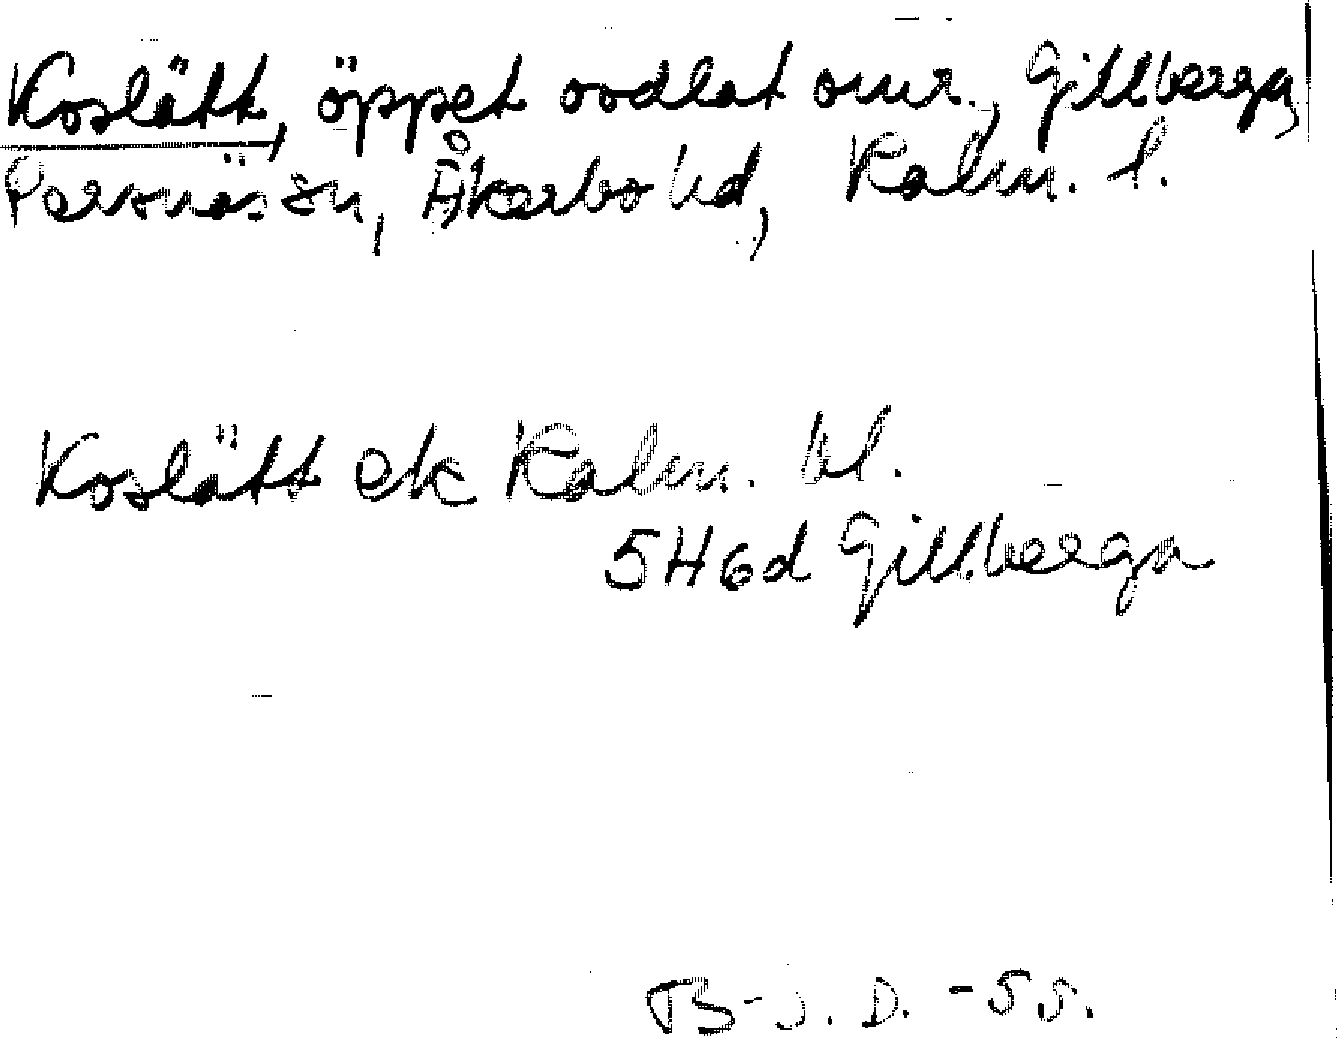 Koslätt, öppet oodlat omr., Gillberga,
Persnäs sn, Åkerbo hd, Kalm. l.
Koslätt ek Kalm. bl.
5H6d Gillberga
B-J. D. -55.